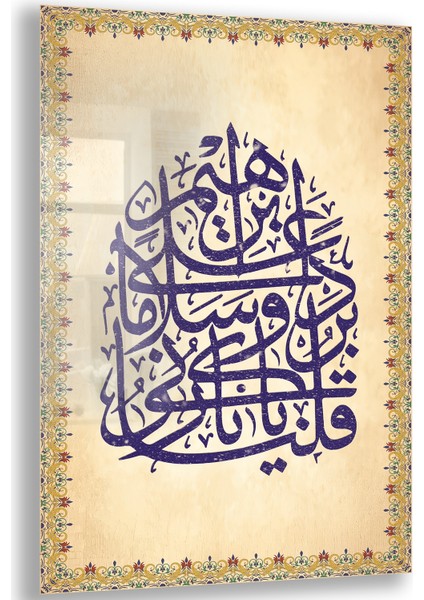 قلنا يا نار كوني بردا وسلاما على إبراهيم